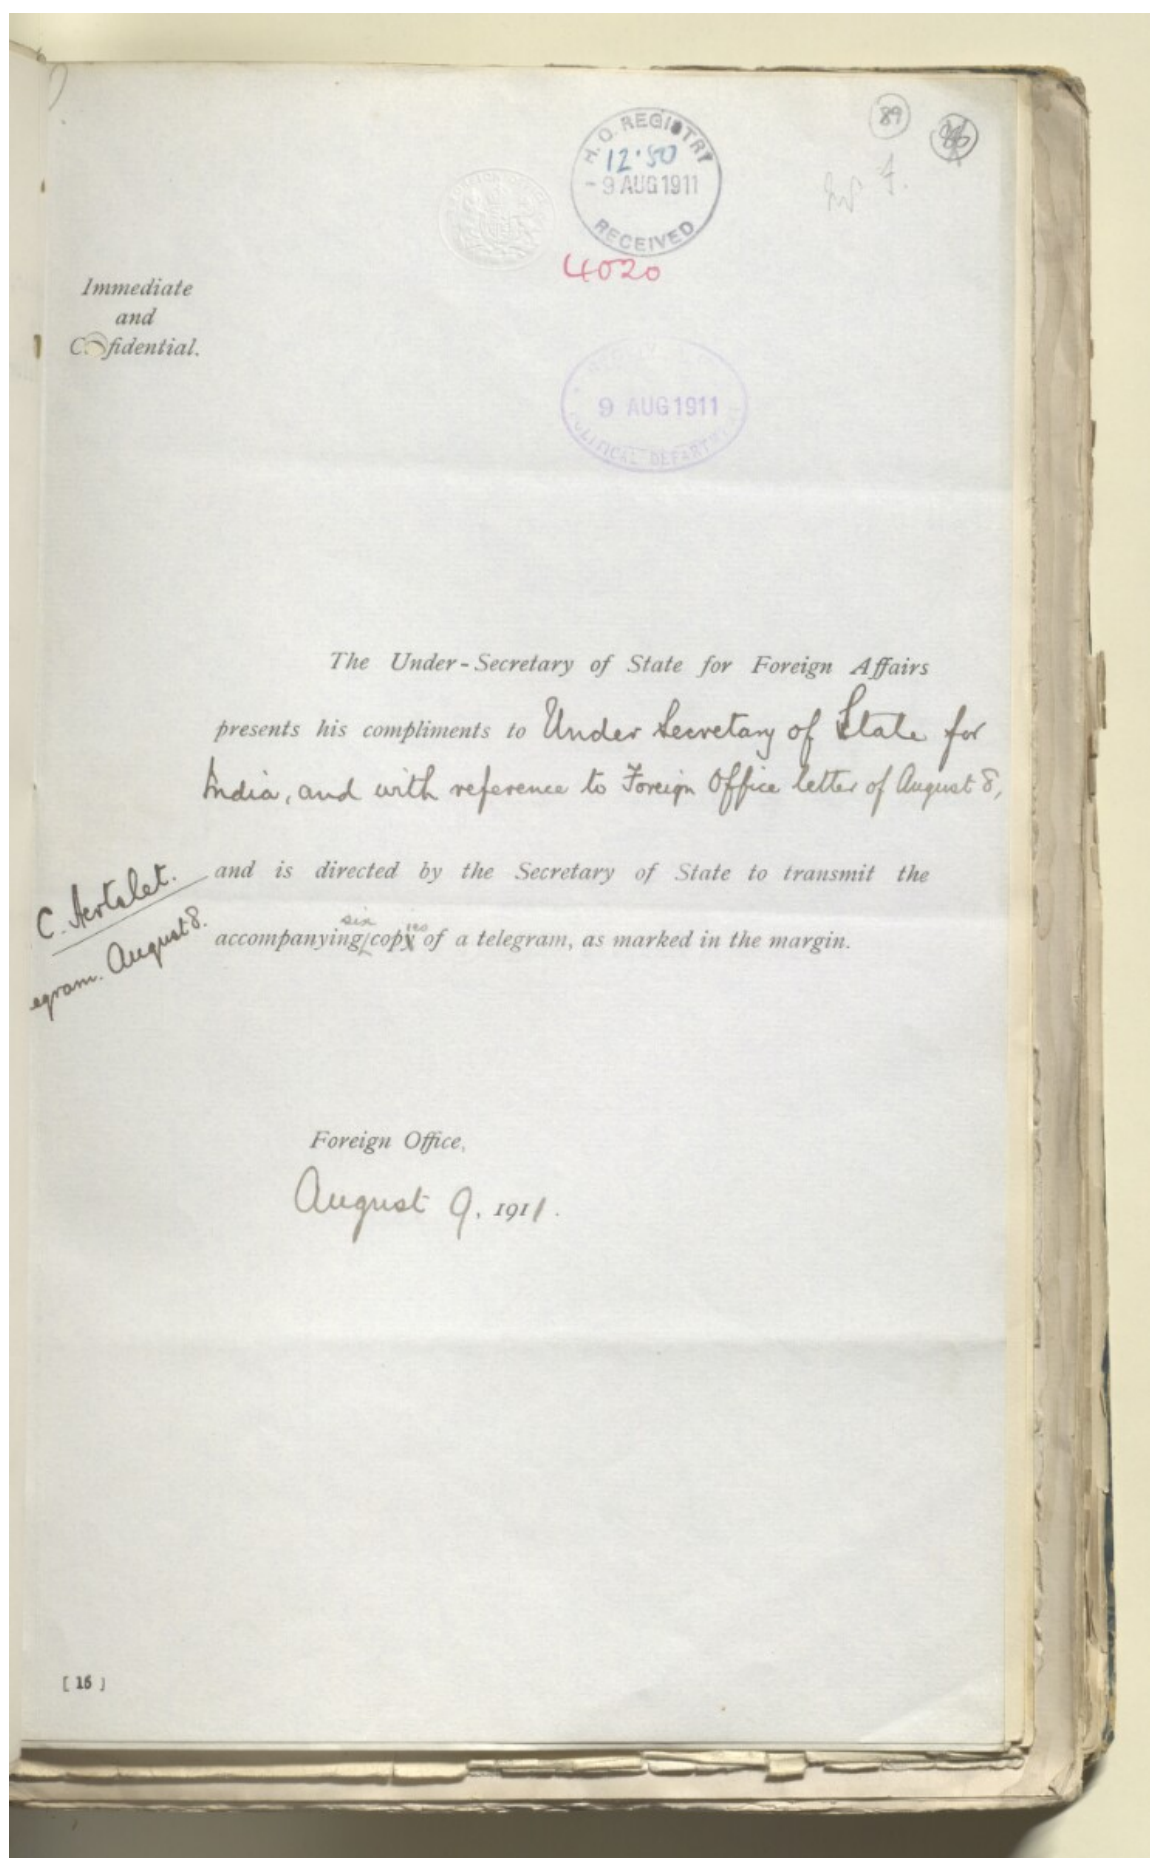 89
H.O. REGISTRY
12.50
- 9 AUG 1911
RECEIVED
4020
Immediate
and
Cofidential.
9 AUG 1911
POLITICAL DEPARTMENT
The Under-Secretary of State for Foreign Affairs
presents his compliments to Under Secretary of State for
India, and with reference to Foreign Office letter of August 8,
and is directed by the Secretary of State to transmit the
C. Hertslet.
six ies
accompanying copy of a telegram, as marked in the margin.
egram. August 8.
Foreign Office,
August 9, 1911.
[ 16 ]